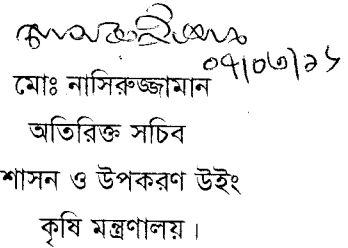 ০৭/০৬/১৮
মোঃ নাসিরুজ্জামান
অতিরিক্ত সচিব
শাসন ও উপকরণ উইং
কৃষি মন্ত্রণালয় ।